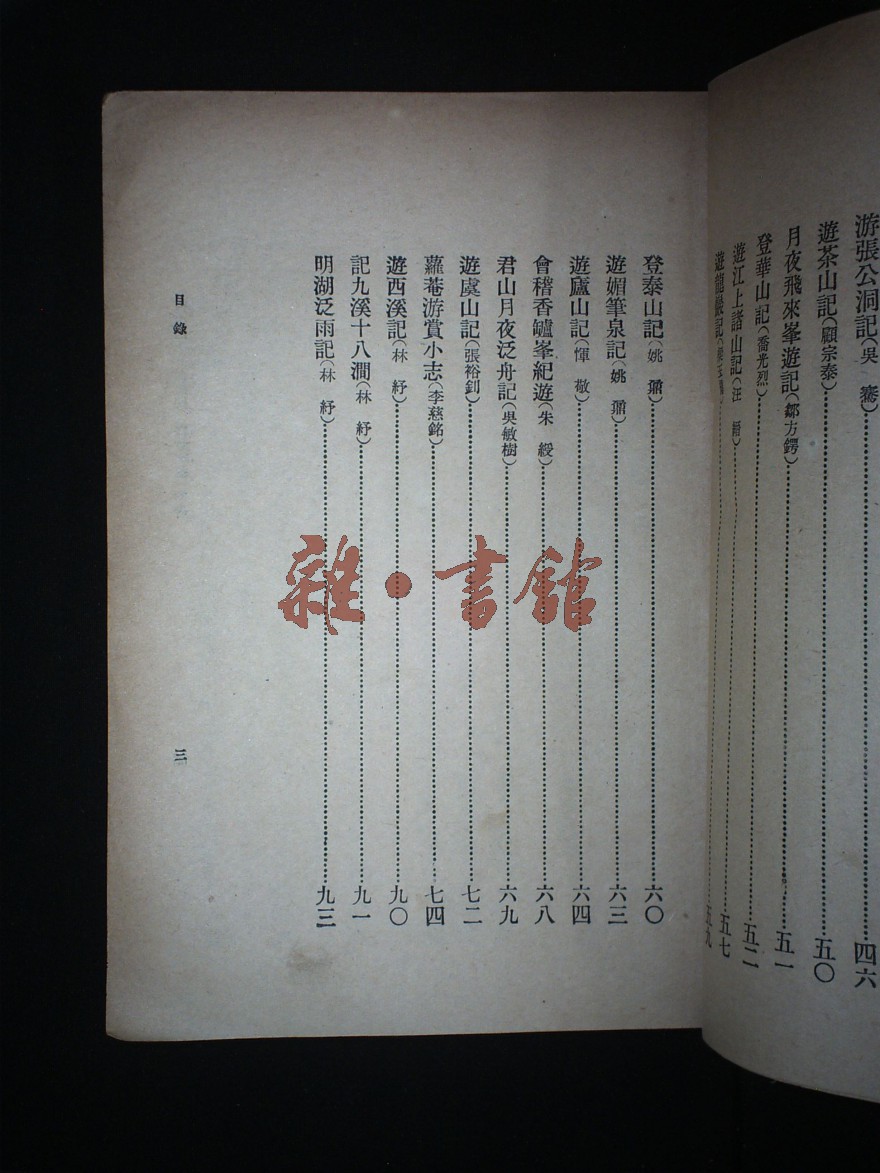 游張公洞記（吳　騫）…………四六
遊茶山記（顧宗泰）…………五〇
月夜飛來峯遊記（鄒方鍔）…………五一
登華山記（喬光烈）…………五二
遊江上諸山記（汪　縉）…………五七
遊龍 記 …………五九
登泰山記（姚　鼐）…………六〇
遊媚筆泉記（姚　鼐）…………六三
遊廬山記（惲　敬）…………六四
會稽香罏峯紀遊（朱　綬）…………六八
君山月夜泛舟記（吳敏樹）…………六九
遊虞山記（張裕釗）…………七二
蘿菴游賞小志（李慈銘）…………七四
遊西溪記（林　紓）…………九〇
記九溪十八澗（林　紓）…………九一
明湖泛雨記（林　紓）…………九三
目錄
三
雜·書館